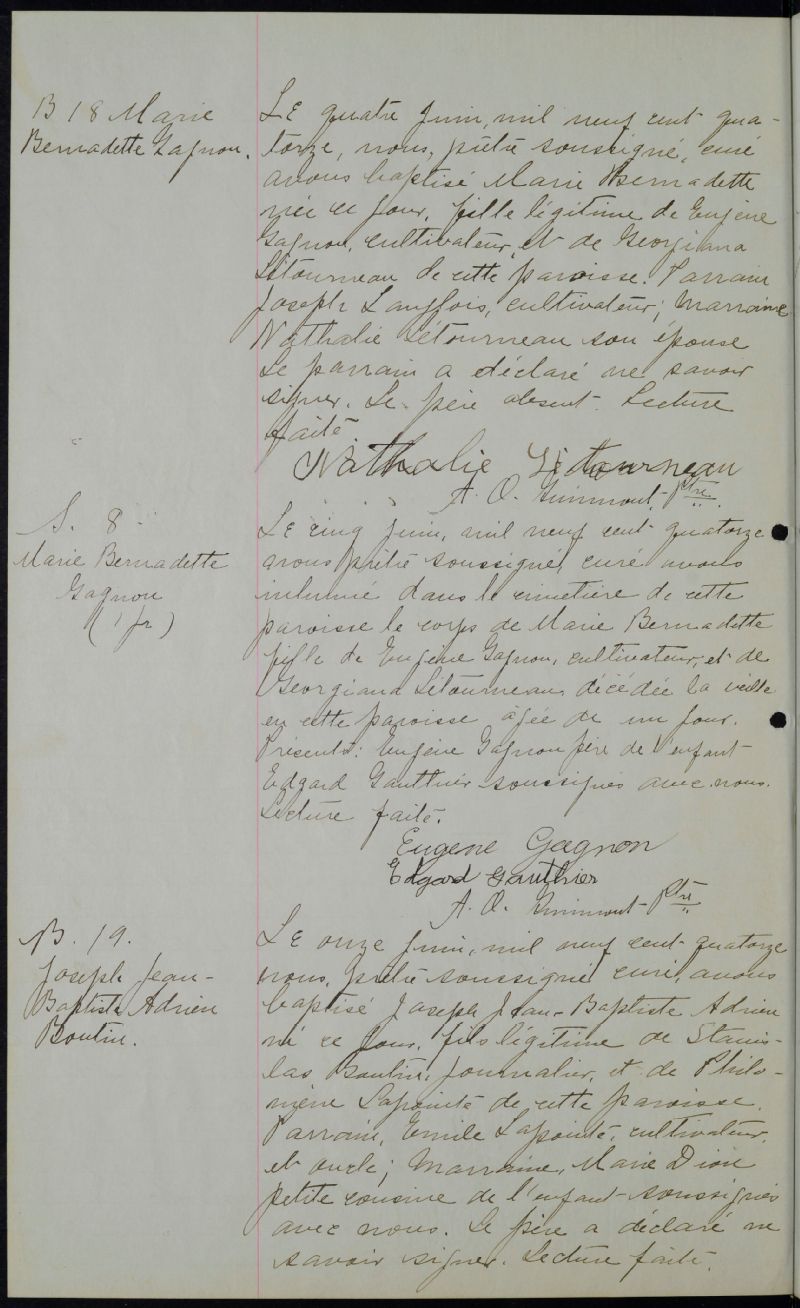 B 18 Marie
Bernadette Gagnon.
Le quatre Juin, mil neuf cent qua-
torze, nous, prêtre soussigné, curé
avons baptisé Marie Bernadette
née ce jour, fille légitime de Eugène
Gagnon, cultivateur, et de Georgiana
Létourneau de cette paroisse. Parrain
Joseph Langlois, cultivateur; Marraine
Nathalie Létourneau son épouse
Le parrain a déclaré ne savoir
signer. Le père absent. Lecture
faite
Nathalie Létourneau
A. O. Ptre.
S. 8
Marie Bernadette
Gagnon
(1 jr)
Le cinq Juin, mil neuf cent quatorze
nous prêtre soussigné, curé avons
inhumé dans le cimetière de cette
paroisse le corps de Marie Bernadette
fille de Eugène Gagnon, cultivateur, et de
Georgiana Létourneau, décédée la veille
en cette paroisse âgée de un jour.
Présents: Eugène Gagnon père de l'enfant
Edgard Gauthier soussignés avec nous.
Lecture faite.
Eugene Gagnon
Edgard Gauthier
A. O. Ptre
B. 19.
Joseph Jean-
Baptiste Adrien
Boutin.
Le onze Juin, mil neuf cent quatorze
nous, prêtre soussigné curé, avons
baptisé Joseph Jean-Baptiste Adrien
né ce jour, fils légitime de Stanis-
las Boutin, journalier, et de Philo-
mène Lapointe de cette paroisse.
Parrain, Emile Lapointe, cultivateur,
et oncle; Marraine, Marie Dion
petite cousine de l'enfant soussignés
avec nous. Le père a déclaré ne
savoir signer. Lecture faite.